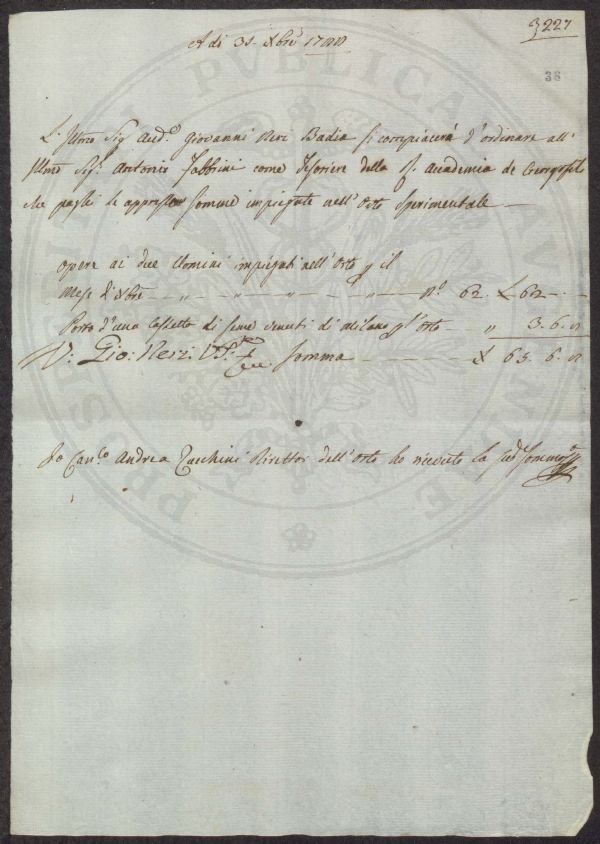 3227
A di 31. Xbre 1788
36
L'Illmo Sig. Aud.e Giovanni Neri Badia si compiacerà d'ordinare all'
Illmo Sig.r Antonio Fabbrini come Tesoriere della R. Accademia de Georgofili
che paghi le appresso somme impiegate nell'Orto Sperimentale
Opere ai due Uomini impiegati nell'Orto p il
Mese d'Xbre n.o 62. £ 62
Porto d'una Cassetta di seme venuti di Milano p l'Orto " 3. 6. 8
V: Gio: Neri: somma £ 65. 6. 8
Io Can.co Andrea Zucchini Direttor dell'Orto ho ricevuto la sud. somma
PVBLICA